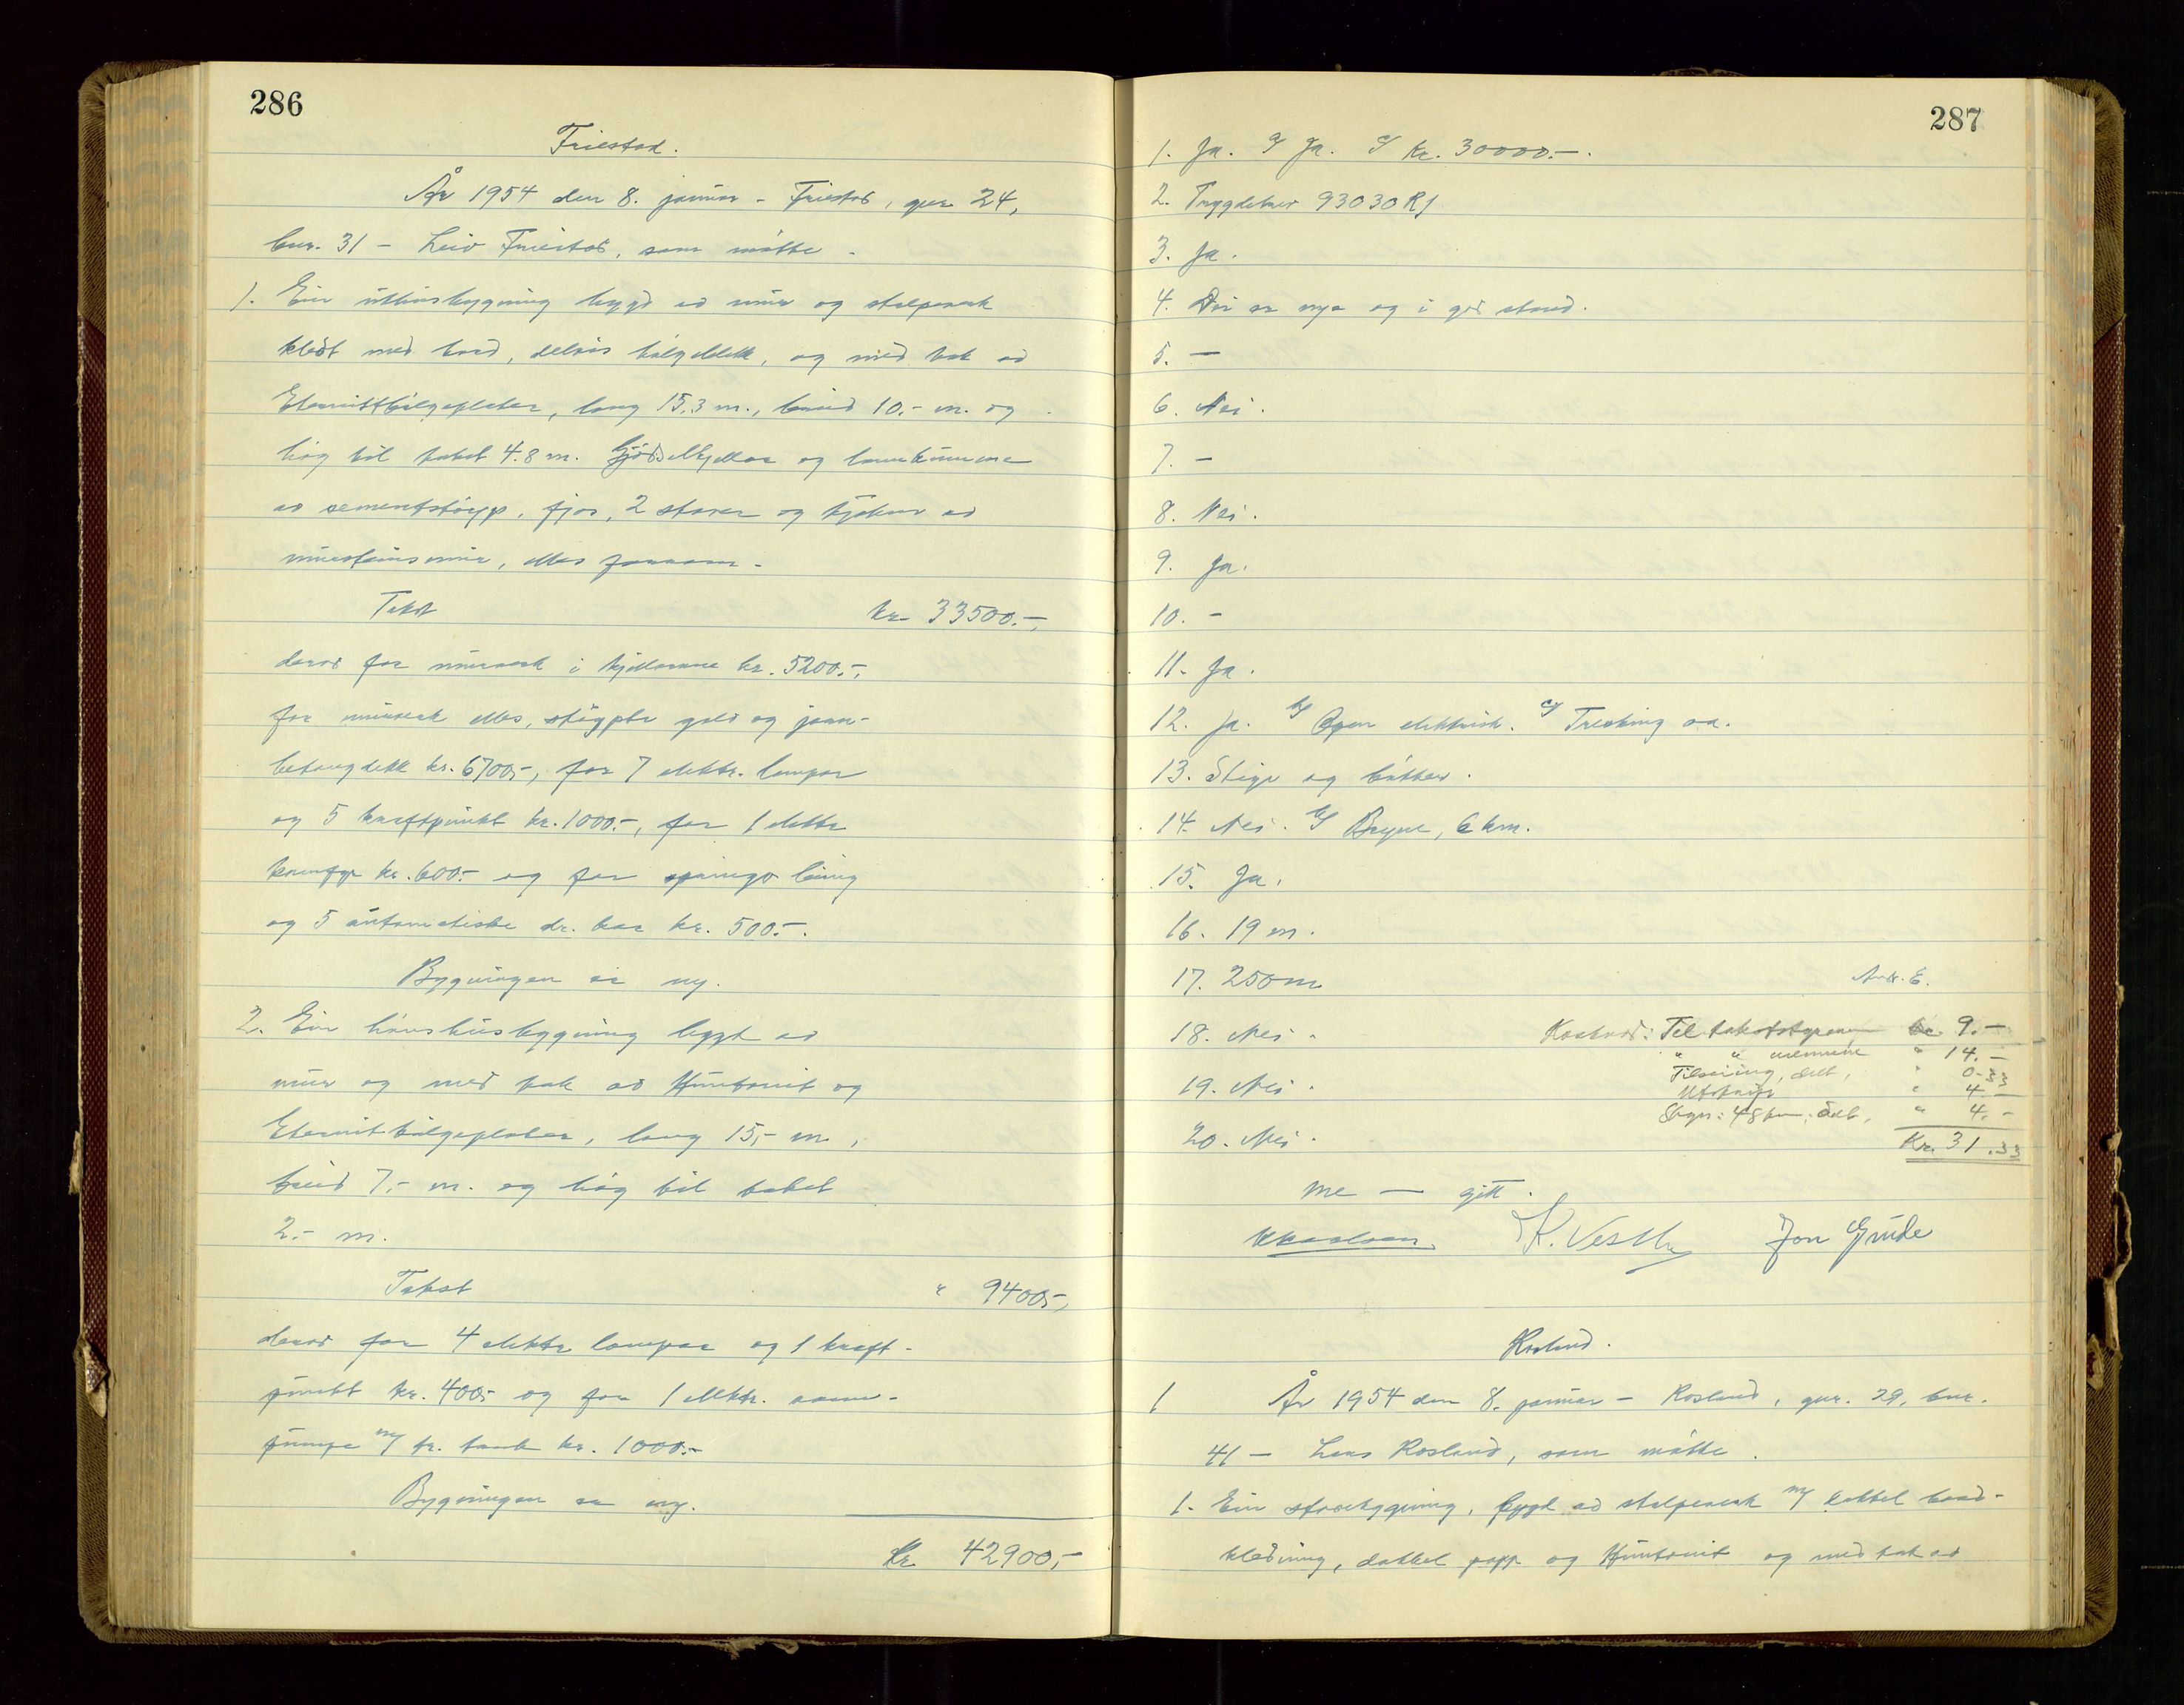 286
Friestad.
År 1954 den 8. januar - Friestad, gnr. 24,
bnr. 31 - Leiv Friestad, som møtte.
1. Ein uthusbygning bygd av mur og stolpeverk
kledt med bord, delvis bølgeblekk, og med tak av
Eternittbølgeplater, lang 15,3 m., breid 10,- m. og
høg til taket 4.8 m. Gjødselkjellar og landkumme
av sementstøyp, fjøs, 2 stover og kjøken av
mursteinsmur, elles
Takst kr 33500.-,
derav for murverk i kjellarane kr. 5200.-,
for murverk elles, støypte golv og jarn-
betongdekk kr. 6700,-, for 7 elektr. lampor
og 5 kraftpunkt kr. 1000.-, for 1 elektr.
komfyr kr. 600.- og for springv. leing
og 5 automatiske dr. kar kr. 500.-.
Bygningen er ny.
2. Ein hønsehusbygning bygd av
mur og med tak av Huntonit og
Eternitbølgeplater, lang 15,- m.,
breid 7,- m. og høg til taket
2.- m.
Takst " 9400,-,
derav for 4 elektr. lampor og 1 kraft-
punkt kr. 400,- og for 1 elektr. vann-
pumpe m/ tr. tank kr. 1000.-
Bygningen er ny.
Kr. 42900,-
287
1. Ja. b/ Ja. c/ Kr. 30000.-.
2. Trygdebrev 93030 RJ
3. Ja.
4. Dei er nye og i god stand.
5. -
6. Nei.
7. -
8. Nei.
9. Ja.
10. -
11. Ja.
12. Ja. b/ Open elektrisk. c/ Tresking oa.
13. Stige og bøtter.
14. Nei. b/ Bryne, 6 km.
15. Ja.
16. 19 m.
17. 250 m
18. Nei.
19. Nei.
20. Nei.
Avs. E.
Kostnad: Til takststyraren kr. 9.-
" " mennene " 14.-
Tilseiing, delt, " 0.33
Utskrift " 4.-
Skyss: 48 km, delt, " 4.-
Kr. 31.33
Me - gitt.
K. Vesthe Jon Grude
Rosland.
1 År 1954 den 8. januar - Rosland, gnr. 29, bnr.
41 - Lars Rosland, som møtte.
1. Ein stovebygning, bygd av stolpeverk m/ dobbel bord-
kledning, dobbel papp og Huntonit og med tak av